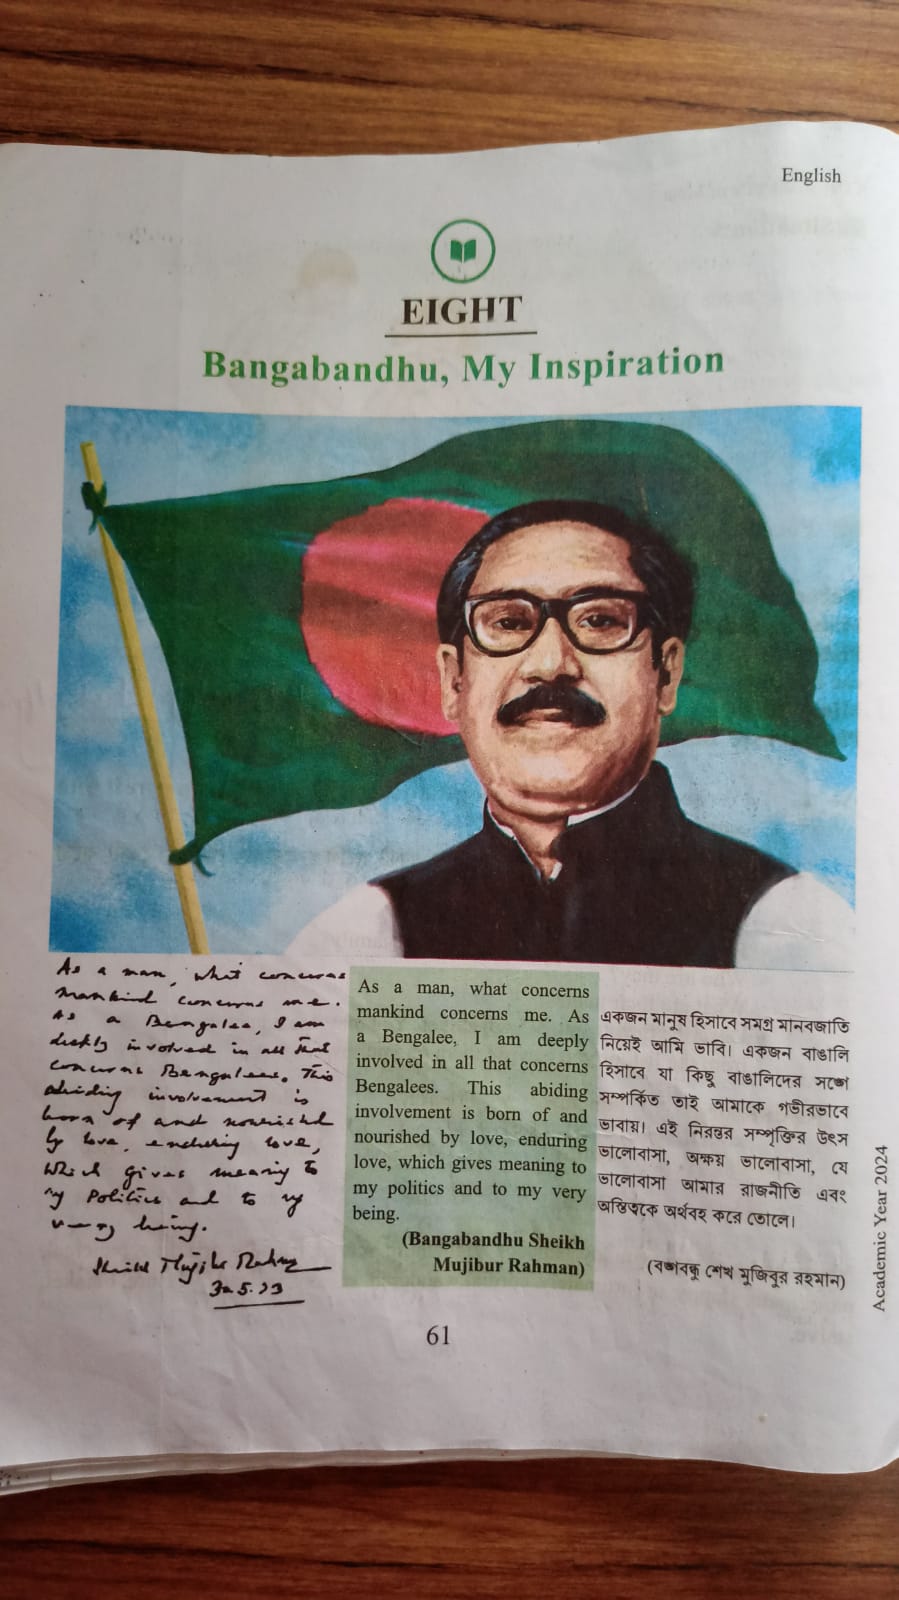 English
EIGHT
Bangabandhu, My Inspiration
As a man, what concerns
mankind concerns me.
As a Bengalee, I am
deeply involved in all that
concerns Bengalees. This
abiding involvement is
born of and nourished
by love, enduring love,
which gives meaning to
my politics and to my
very being.
Sheikh Mujibur Rahman
30.5.73
As a man, what concerns
mankind concerns me. As
a Bengalee, I am deeply
involved in all that concerns
Bengalees. This abiding
involvement is born of and
nourished by love, enduring
love, which gives meaning to
my politics and to my very
being.
(Bangabandhu Sheikh
Mujibur Rahman)
একজন মানুষ হিসাবে সমগ্র মানবজাতি
নিয়েই আমি ভাবি। একজন বাঙালি
হিসাবে যা কিছু বাঙালিদের সঙ্গে
সম্পর্কিত তাই আমাকে গভীরভাবে
ভাবায়। এই নিরন্তর সম্পৃক্তির উৎস
ভালোবাসা, অক্ষয় ভালোবাসা, যে
ভালোবাসা আমার রাজনীতি এবং
অস্তিত্বকে অর্থবহ করে তোলে।
(বঙ্গবন্ধু শেখ মুজিবুর রহমান)
61
Academic Year 2024